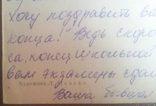 хочу поздравить ва
конца! Ведь скоро
са, конец школьной
вам экзамены сдат
Ваша бывшая